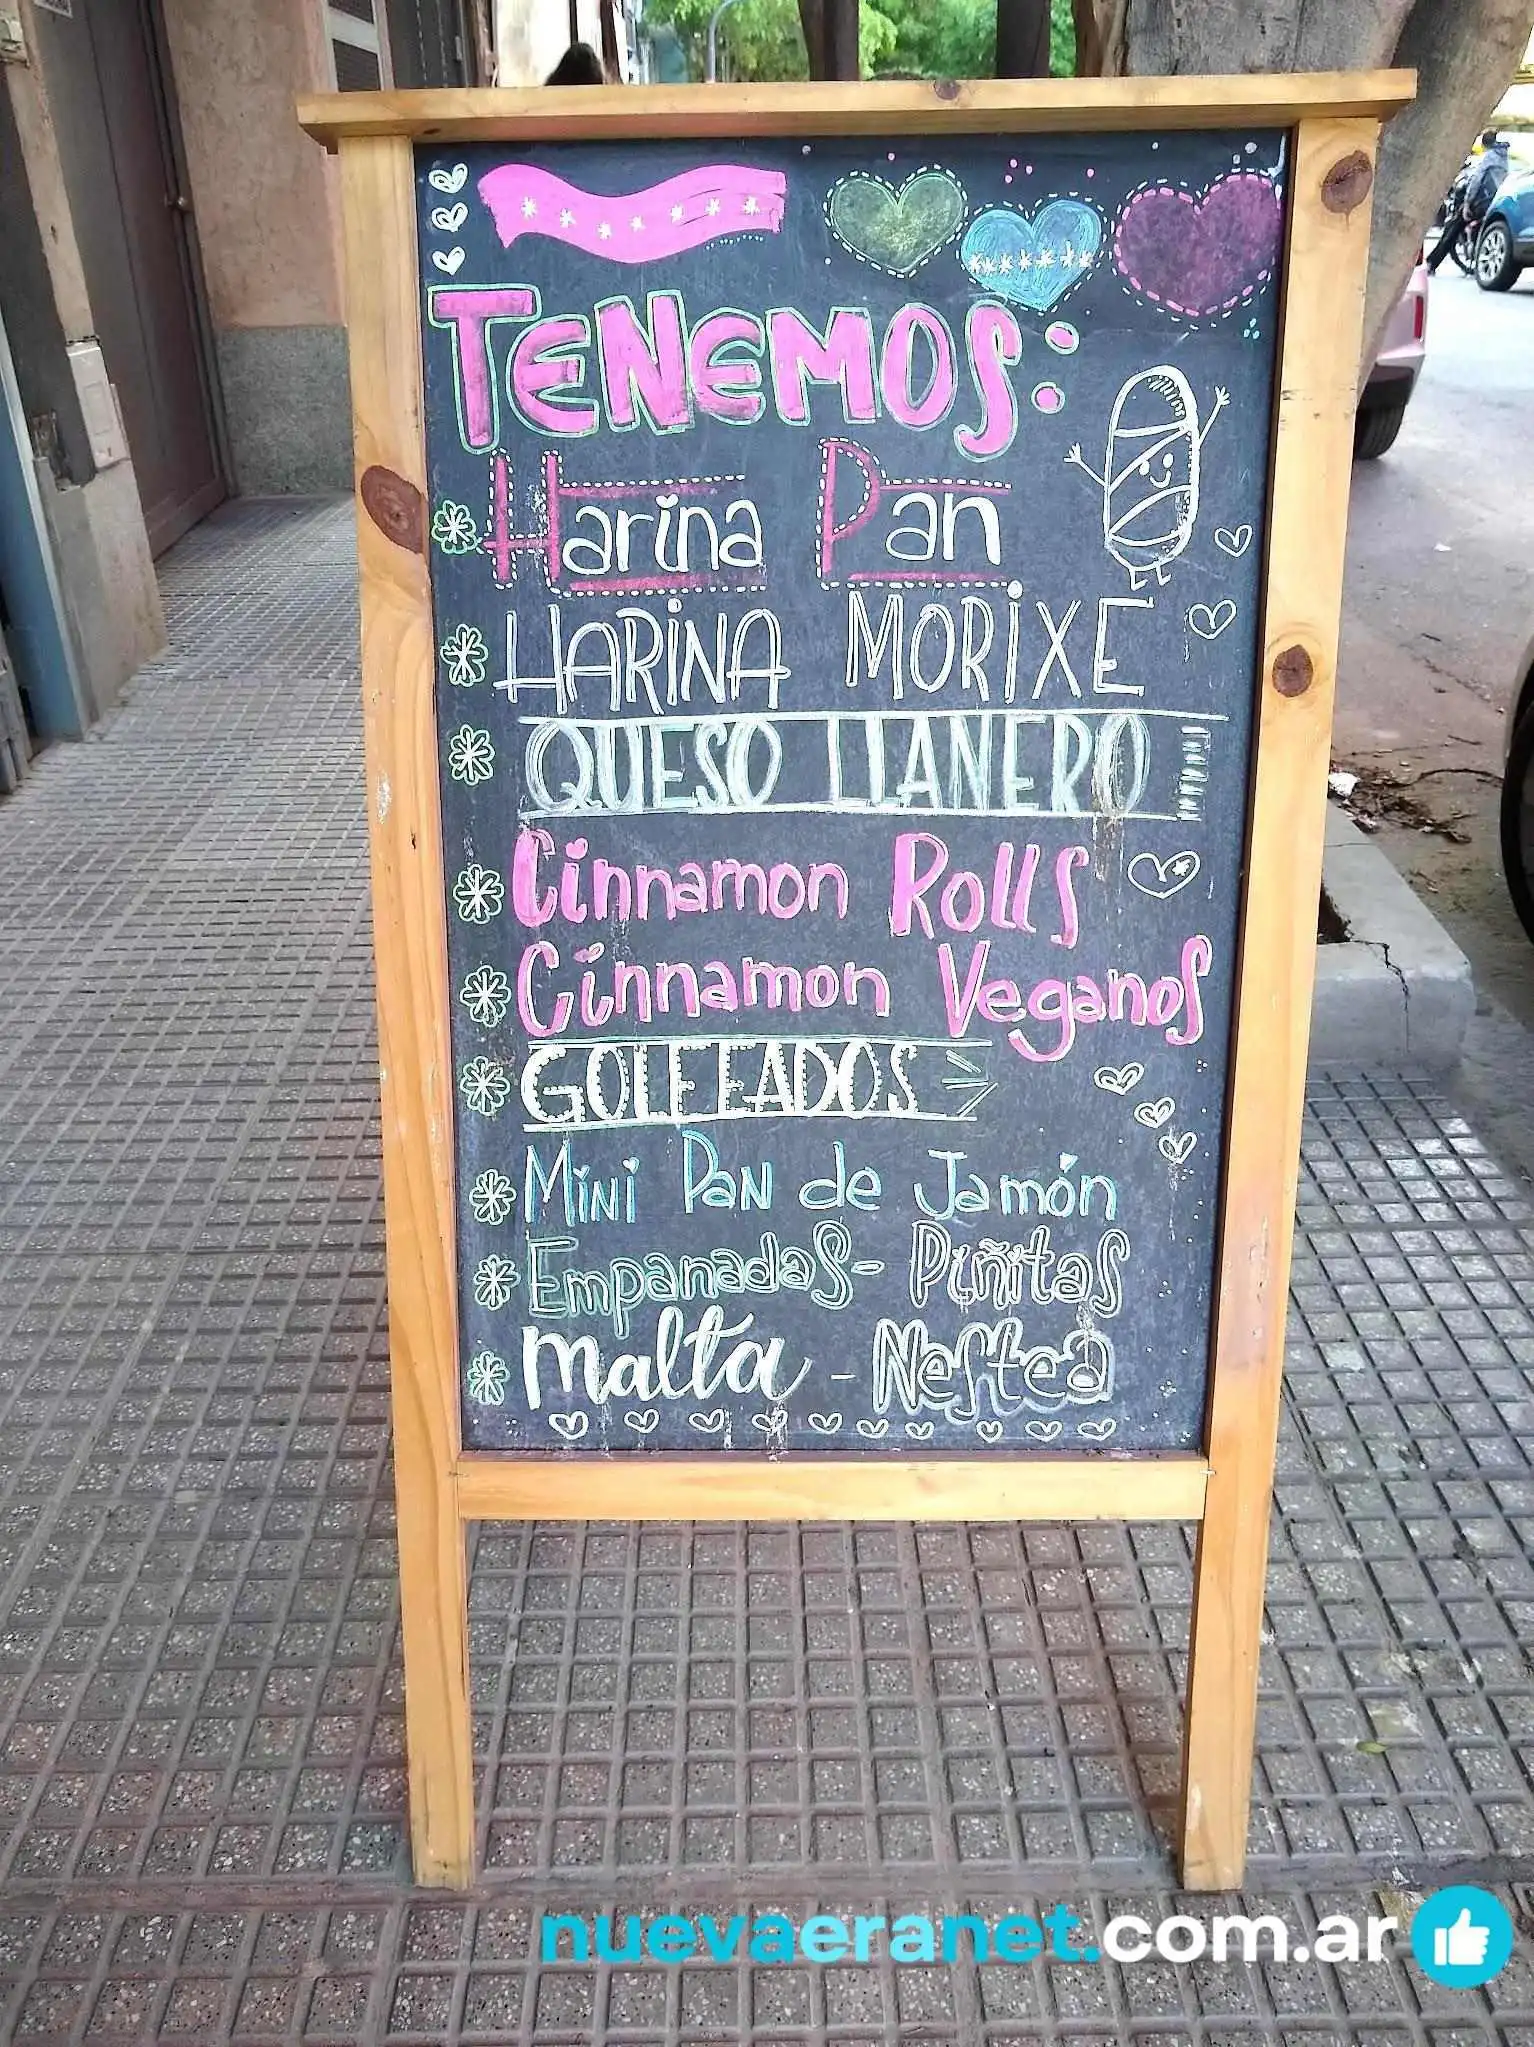 TENEMOS:
Harina Pan
HARINA MORIXE
QUESO LLANERO
Cinnamon Rolls
Cinnamon Veganos
GOLFEADOS
MiNi PaN de Jamón
Empanadas - Piñitas
Malta - Nestea
nuevaeranet.com.ar